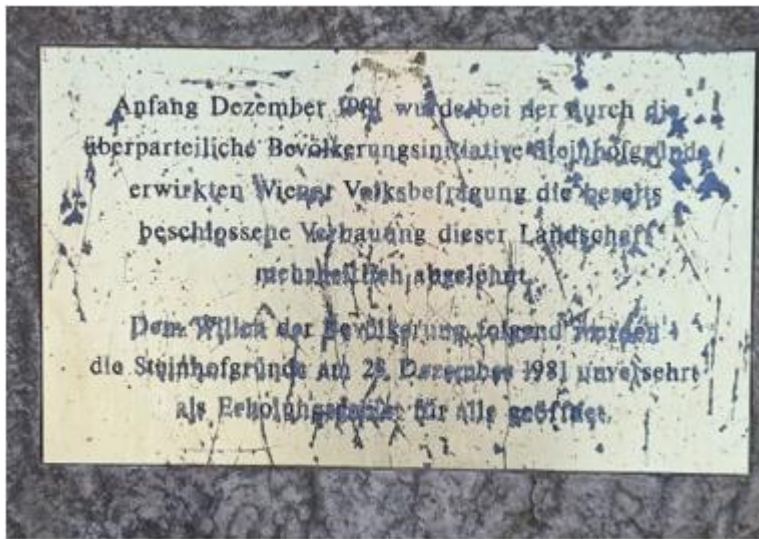 Anfang Dezember 1981 wurde bei der durch die
überparteiliche Bevölkerungsinitiative Steinhofgründe
erwirkten Wiener Volksbefragung die bereits
beschlossene Verbauung dieser Landschaft
mehrheitlich abgelehnt.
Dem Willen der Bevölkerung folgend wurden
die Steinhofgründe am Dezember 1981 unversehrt
als Erholungsgebiet für alle geöffnet.